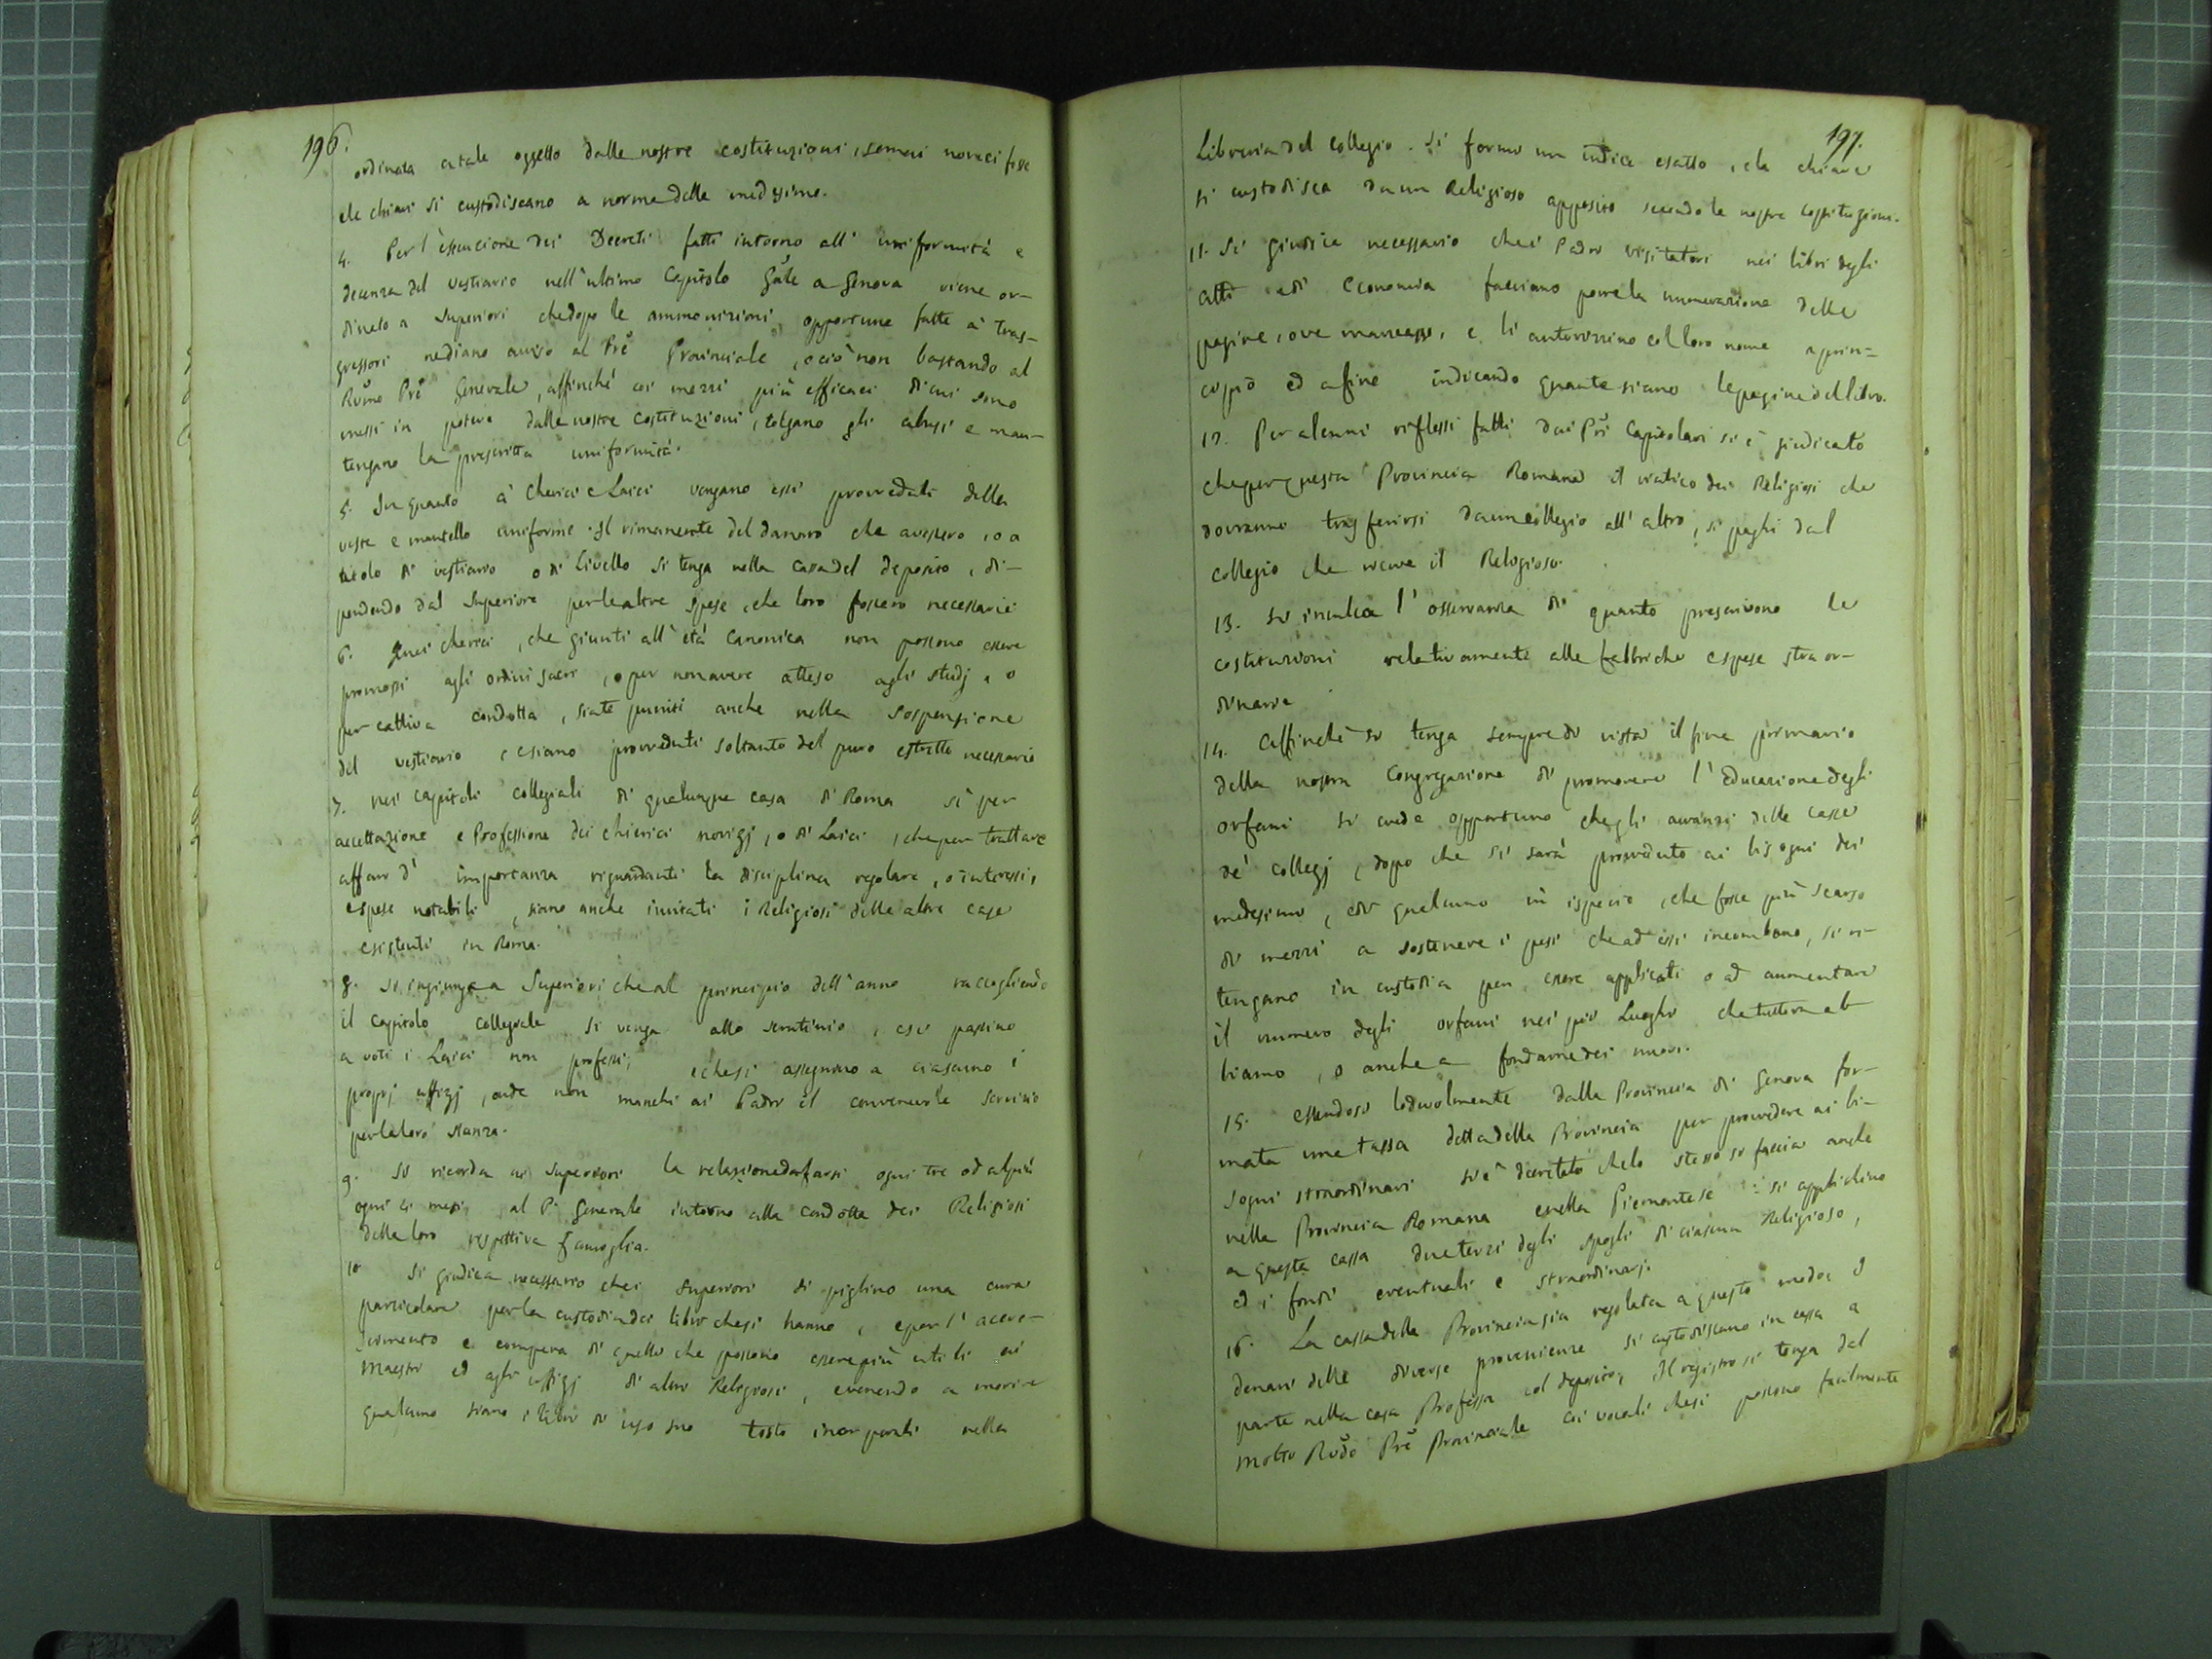 196.
ordinata a tale oggetto dalle nostre costituzioni, se mai non ci fosse
e le chiavi si custodiscano a norma delle medesime.
4. Per l'esecuzione dei Decreti fatti intorno all' uniformità e
decenza del vestiario nell'ultimo Capitolo Gãle a Genova viene or-
dinato a Superiori che dopo le ammonizioni opportune fatte a' tras-
gressori ne diano avviso al Prẽ Provinciale, e ciò non bastando al
Rm̃o Prẽ Generale, affinchè coi mezzi più efficaci di cui sono
messi in potere dalle nostre costituzioni, tolgano gli abusi e man-
tengano la prescritta uniformità.
5. In quanto a' Cherici e Laici vengano essi provveduti della
veste e mantello uniforme. Il rimanente del danaro che avessero, o a
titolo di vestiario o di Livello si tenga nella Cassa del deposito, di-
pendendo dal Superiore per le altre spese, che loro fossero necessarie
6. Quei cherici, che giunti all'età canonica non possono essere
promossi agli ordini sacri, o per non avere atteso agli studj, o
per cattiva condotta, siate puniti anche nella sospensione
del vestiario e siano provveduti soltanto del puro estretto necessario
7. nei capitoli collegiali di qualunque casa di Roma sì per
accettazione e Professione dei chierici novizj, o di Laici, che per trattare
affari d' importanza riguardanti la disciplina regolare, o interessi,
e spese notabili, siano anche invitati i Religiosi delle altre case
esistenti in Roma.
8. Si ingiunge a Superiori che al principio dell'anno raccogliendo
il Capitolo Collegiale si venga allo scrutinio, e si passino
a voti i Laici non professi; e che si assegnino a ciascuno i
proprj uffizj, onde non manchi ai Padri il convenevole servizio
per la loro stanza.
9. Si ricorda ai Superiori la relazione da farsi ogni tre od al più
ogni 4 mesi, al P. Generale intorno alla condotta dei Religiosi
della loro rispettiva famiglia.
10 Si giudica necessario che i Superiori si piglino una cura
particolare per la custodia dei libri che si hanno, e per l' accre-
scimento e compera di quelli che possono essere più utili ai
Maestri ed agli uffizj di altri Religiosi, e venendo a morire
qualcuno siano i libri di uso suo tosto incorporati nella
197.
Libreria del Collegio. Si formi un indice esatto, e la chiave
si custodisca da un Religioso apposito secondo le nostre costituzioni.
11. Si giudica necessario che i Padri visitatori nei libri degli
Atti e di Economia facciano porre la numerazione delle
pagine, ove mancasse, e li autorizzino col loro nome a prin-
cipio ed a fine indicando quante siano le pagine del libro.
12. Per alcuni riflessi fatti dai Pri Capitolari si è giudicato
che per questa Provincia Romana il viatico dei Religiosi che
dovranno trasferirsi da un collegio all' altro, si paghi dal
collegio che riceve il Religioso.
13. Si inculca l' osservanza di quanto prescrivono le
costituzioni relativamente alle fabbriche e spese straor-
dinarie
14. Affinchè si tenga sempre di vista il fine primario
della nostra Congregazione di promovere l' Educazione degli
orfani si crede opportuno che gli avanzi delle casse
de' collegj, dopo che si sarà provveduto ai bisogni dei
medesimi, e di qualcuno in ispecie, che fosse più scarso
di mezzi a sostenere i pesi che ad essi incombono, si ri-
tengano in custodia per essere applicati o ad aumentare
il numero degli orfani nei pii Luoghi che tuttora ab-
biamo, o anche a fondarne dei nuovi.
15. Essendosi lodevolmente dalla Provincia di Genova for-
mata una tassa detta della Provincia per provvedere ai bi-
sogni straordinari si è decretato che lo stesso si faccia anche
nella Provincia Romana e nella Piemontese: si applichino
a questa cassa due terzi degli spogli di ciascun Religioso,
ed i fondi eventuali e straordinarj.
16. La cassa della Provincia sia regolata a questo modo. I
denari delle diverse provenienze si custodiscano in cassa a
parte nella casa Professa col deposito, il registro si tenga dal
Molto Rdo Prẽ Provinciale coi vocali che si possono facilmente